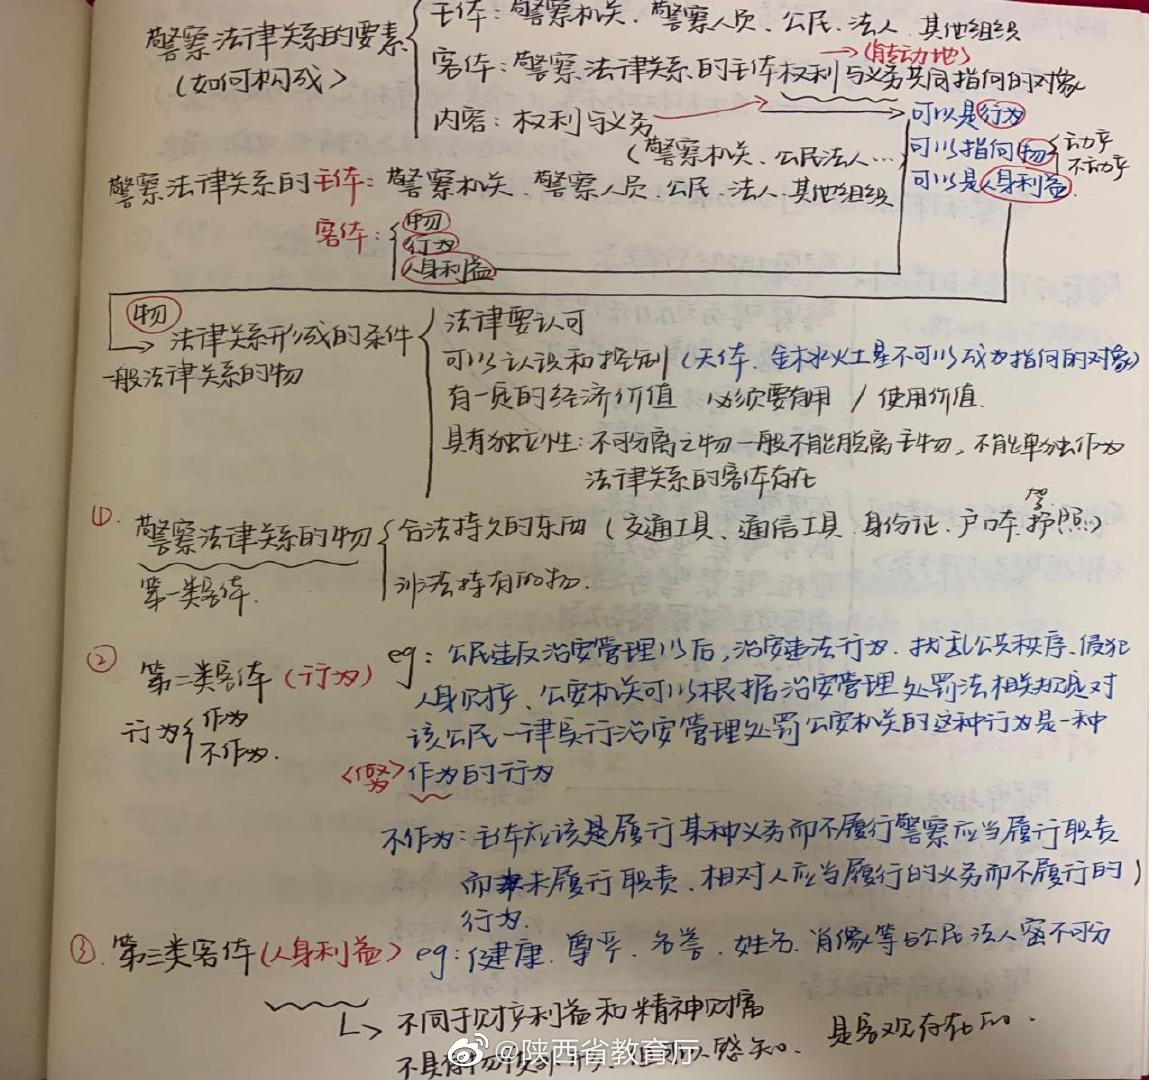 警察法律关系的要素
(如何构成)
主体：警察机关、警察人员、公民、法人、其他组织
客体：警察法律关系的主体权利与义务共同指向的对象
(能动地)
内容：权利与义务
(警察机关、公民法人…)
可以是行为
可以指向物
动产
不动产
可以是人身利益
警察法律关系的主体：警察机关、警察人员、公民、法人、其他组织
客体：
物
行为
人身利益
物
法律关系形成的条件
一般法律关系的物
法律要认可
可以认识和控制(天体、金木水火土星不可以成为指向的对象)
有一定的经济价值 必须要有用/使用价值
具有独立性：不可分离之物一般不能脱离主物，不能单独作为
法律关系的客体存在
①.
警察法律关系的物
第一类客体.
合法持久的东西(交通工具、通信工具、身份证、户口本、护照)
驾.
非法持有的物.
②
第二类客体(行为)
行为
作为
不作为.
eg：公民违反治安管理以后，治安违法行为、扰乱公共秩序、侵犯
人身财产、公安机关可以根据治安管理处罚法相关规定对
该公民一律实行治安管理处罚公安机关的这种行为是一种
作为的行为
不作为：主体应该是履行某种义务而不履行警察应当履行职责
而未履行职责、相对人应当履行的义务而不履行的
行为.
③.第三类客体(人身利益) eg：健康、尊严、名誉、姓名、肖像等与公民法人密不可分
不同于财产利益和精神财富
是客观存在的.
@陕西省教育厅